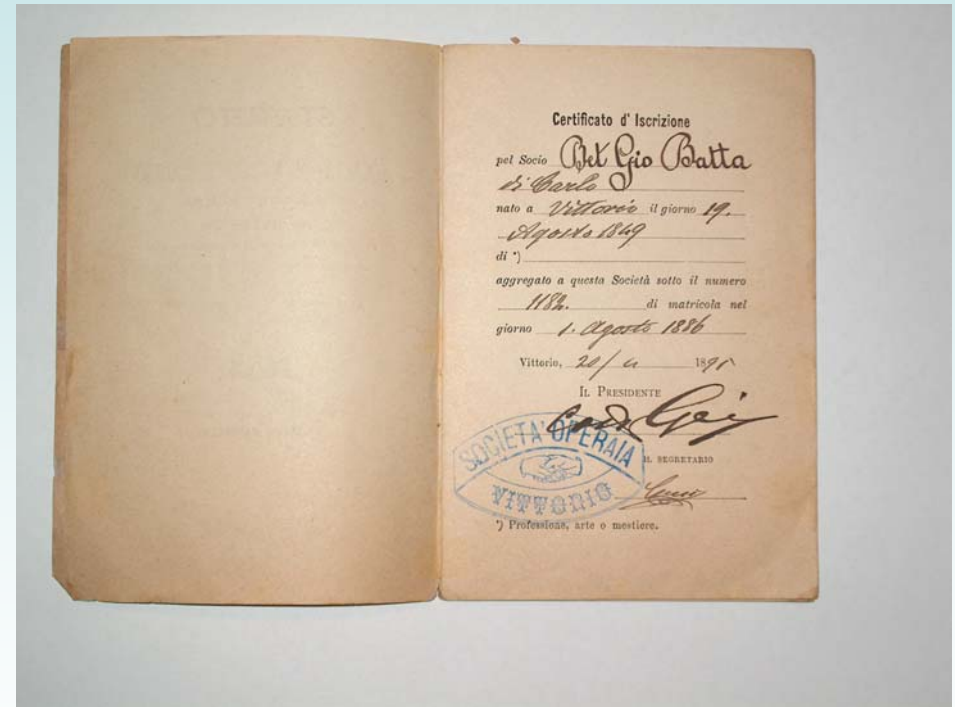 Certificato d' Iscrizione
pel Socio Bet Gio Batta
di Carlo
nato a Vittorio il giorno 19.
Agosto 1849
di *)
aggregato a questa Società sotto il numero
1182. di matricola nel
giorno 1. Agosto 1886
Vittorio, 20/ 189
IL PRESIDENTE
SOCIETA' OPERAIA
IL SEGRETARIO
VITTORIO
*) Professione, arte o mestiere.